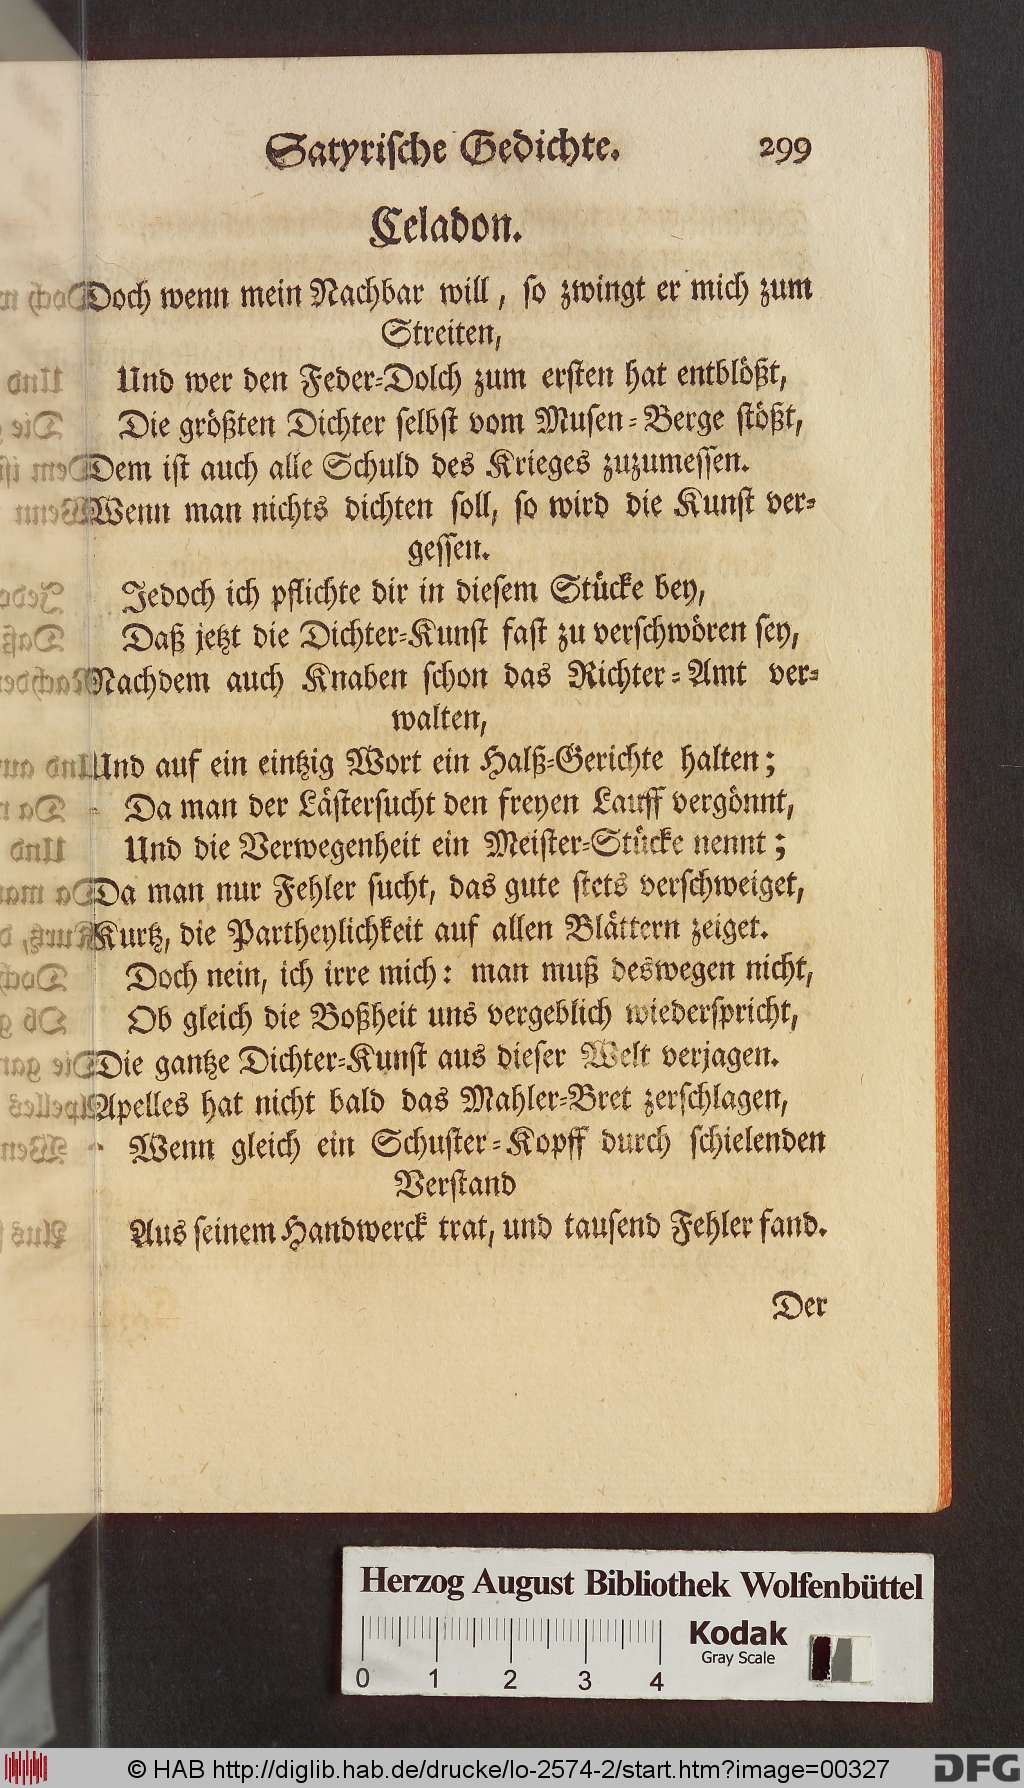 Satyrische Gedichte. 299
Celadon.
Doch wenn mein Nachbar will, so zwingt er mich zum
Streiten,
Und wer den Feder-Dolch zum ersten hat entblößt,
Die größten Dichter selbst vom Musen-Berge stößt,
Dem ist auch alle Schuld des Krieges zuzumessen.
Wenn man nichts dichten soll, so wird die Kunst ver-
gessen.
Jedoch ich pflichte dir in diesem Stücke bey,
Daß jetzt die Dichter-Kunst fast zu verschwören sey,
Nachdem auch Knaben schon das Richter-Amt ver-
walten,
Und auf ein eintzig Wort ein Halß-Gerichte halten;
Da man der Lästersucht den freyen Lauff vergönnt,
Und die Verwegenheit ein Meister-Stücke nennt;
Da man nur Fehler sucht, das gute stets verschweiget,
Kurtz, die Partheylichkeit auf allen Blättern zeiget.
Doch nein, ich irre mich: man muß deswegen nicht,
Ob gleich die Boßheit uns vergeblich wiederspricht,
Die gantze Dichter-Kunst aus dieser Welt verjagen.
Apelles hat nicht bald das Mahler-Bret zerschlagen,
Wenn gleich ein Schuster-Kopff durch schielenden
Verstand
Aus seinem Handwerck trat, und tausend Fehler fand.
Der
Herzog August Bibliothek Wolfenbüttel
Kodak
Gray Scale
0 1 2 3 4
© HAB http://diglib.hab.de/drucke/lo-2574-2/start.htm?image=00327
DFG